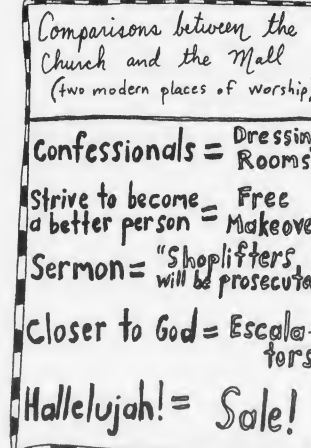 Comparisons between the
Church and the Mall
(two modern places of worship)
Confessionals = Dressin
Rooms
Strive to become = Free
a better person Makeove
Sermon = "Shoplifters
will be prosecute
Closer to God = Escala-
tors
Hallelujah! = Sale!